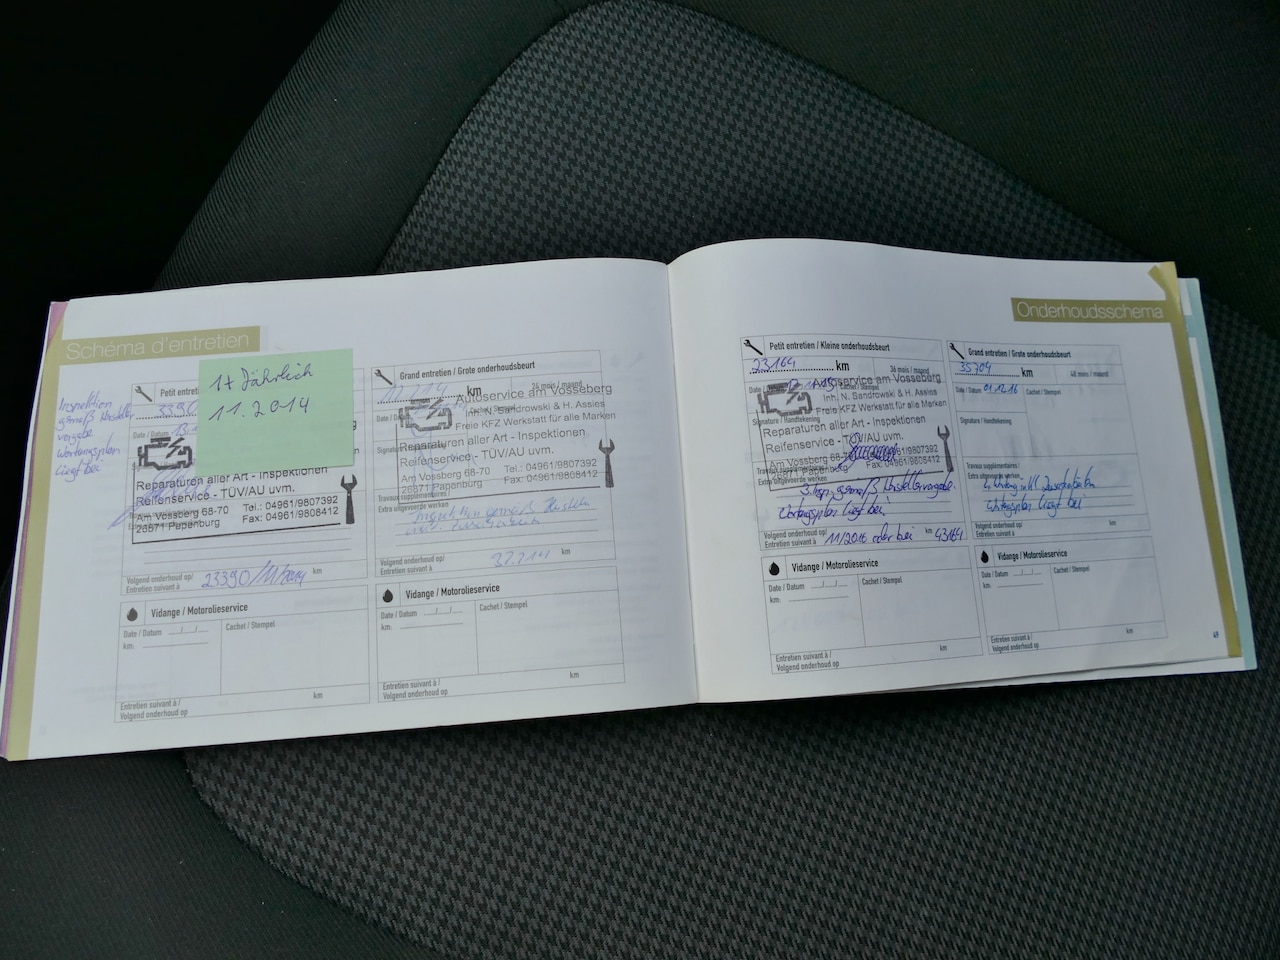 Schéma d'entretien
1x Jährlich
11.2014
Inspektion
gemäß Hersteller
vorgabe
Wartungsplan
liegt bei
Petit entretien
Date / Datum
Reparaturen aller Art - Inspektionen
Reifenservice - TÜV/AU uvm.
Am Vossberg 68-70 Tel.: 04961/9807392
26871 Papenburg Fax: 04961/9808412
Volgend onderhoud op/
Entretien suivant à 23390/11/2014 km
Vidange / Motorolieservice
Date / Datum Cachet / Stempel
km:
km
Entretien suivant à /
Volgend onderhoud op
Grand entretien / Grote onderhoudsbeurt
km 36 mois / maand
Autoservice am Vosseberg
Inh. N. Sandrowski & H. Assies
Freie KFZ Werkstatt für alle Marken
Reparaturen aller Art - Inspektionen
Reifenservice - TÜV/AU uvm.
Am Vossberg 68-70 Tel.: 04961/9807392
26871 Papenburg Fax: 04961/9808412
Travaux supplémentaires /
Extra uitgevoerde werken
Inspektion gemäß
Volgend onderhoud op/
Entretien suivant à km
Vidange / Motorolieservice
Date / Datum Cachet / Stempel
km:
km
Entretien suivant à /
Volgend onderhoud op
Onderhoudsschema
Petit entretien / Kleine onderhoudsbeurt
23164 km 36 mois / maand
Autoservice am Vosseberg
Inh. N. Sandrowski & H. Assies
Freie KFZ Werkstatt für alle Marken
Signature / Handtekening
Reparaturen aller Art - Inspektionen
Reifenservice - TÜV/AU uvm.
Am Vossberg 68-70 Tel.: 04961/9807392
26871 Papenburg Fax: 04961/9808412
Travaux supplémentaires /
Extra uitgevoerde werken
3. Insp. gemäß Herstellervorgabe.
Wartungsplan liegt bei
Volgend onderhoud op/
Entretien suivant à 11/2016 oder bei km 43164
Vidange / Motorolieservice
Date / Datum Cachet / Stempel
km:
Entretien suivant à / km
Volgend onderhoud op
Grand entretien / Grote onderhoudsbeurt
35704 km 48 mois / maand
Date / Datum 01.12.16 Cachet / Stempel
Signature / Handtekening
Travaux supplémentaires /
Extra uitgevoerde werken
Wartungsplan liegt bei
Volgend onderhoud op/ km
Entretien suivant à
Vidange / Motorolieservice
Date / Datum Cachet / Stempel
km:
Entretien suivant à / km
Volgend onderhoud op
49